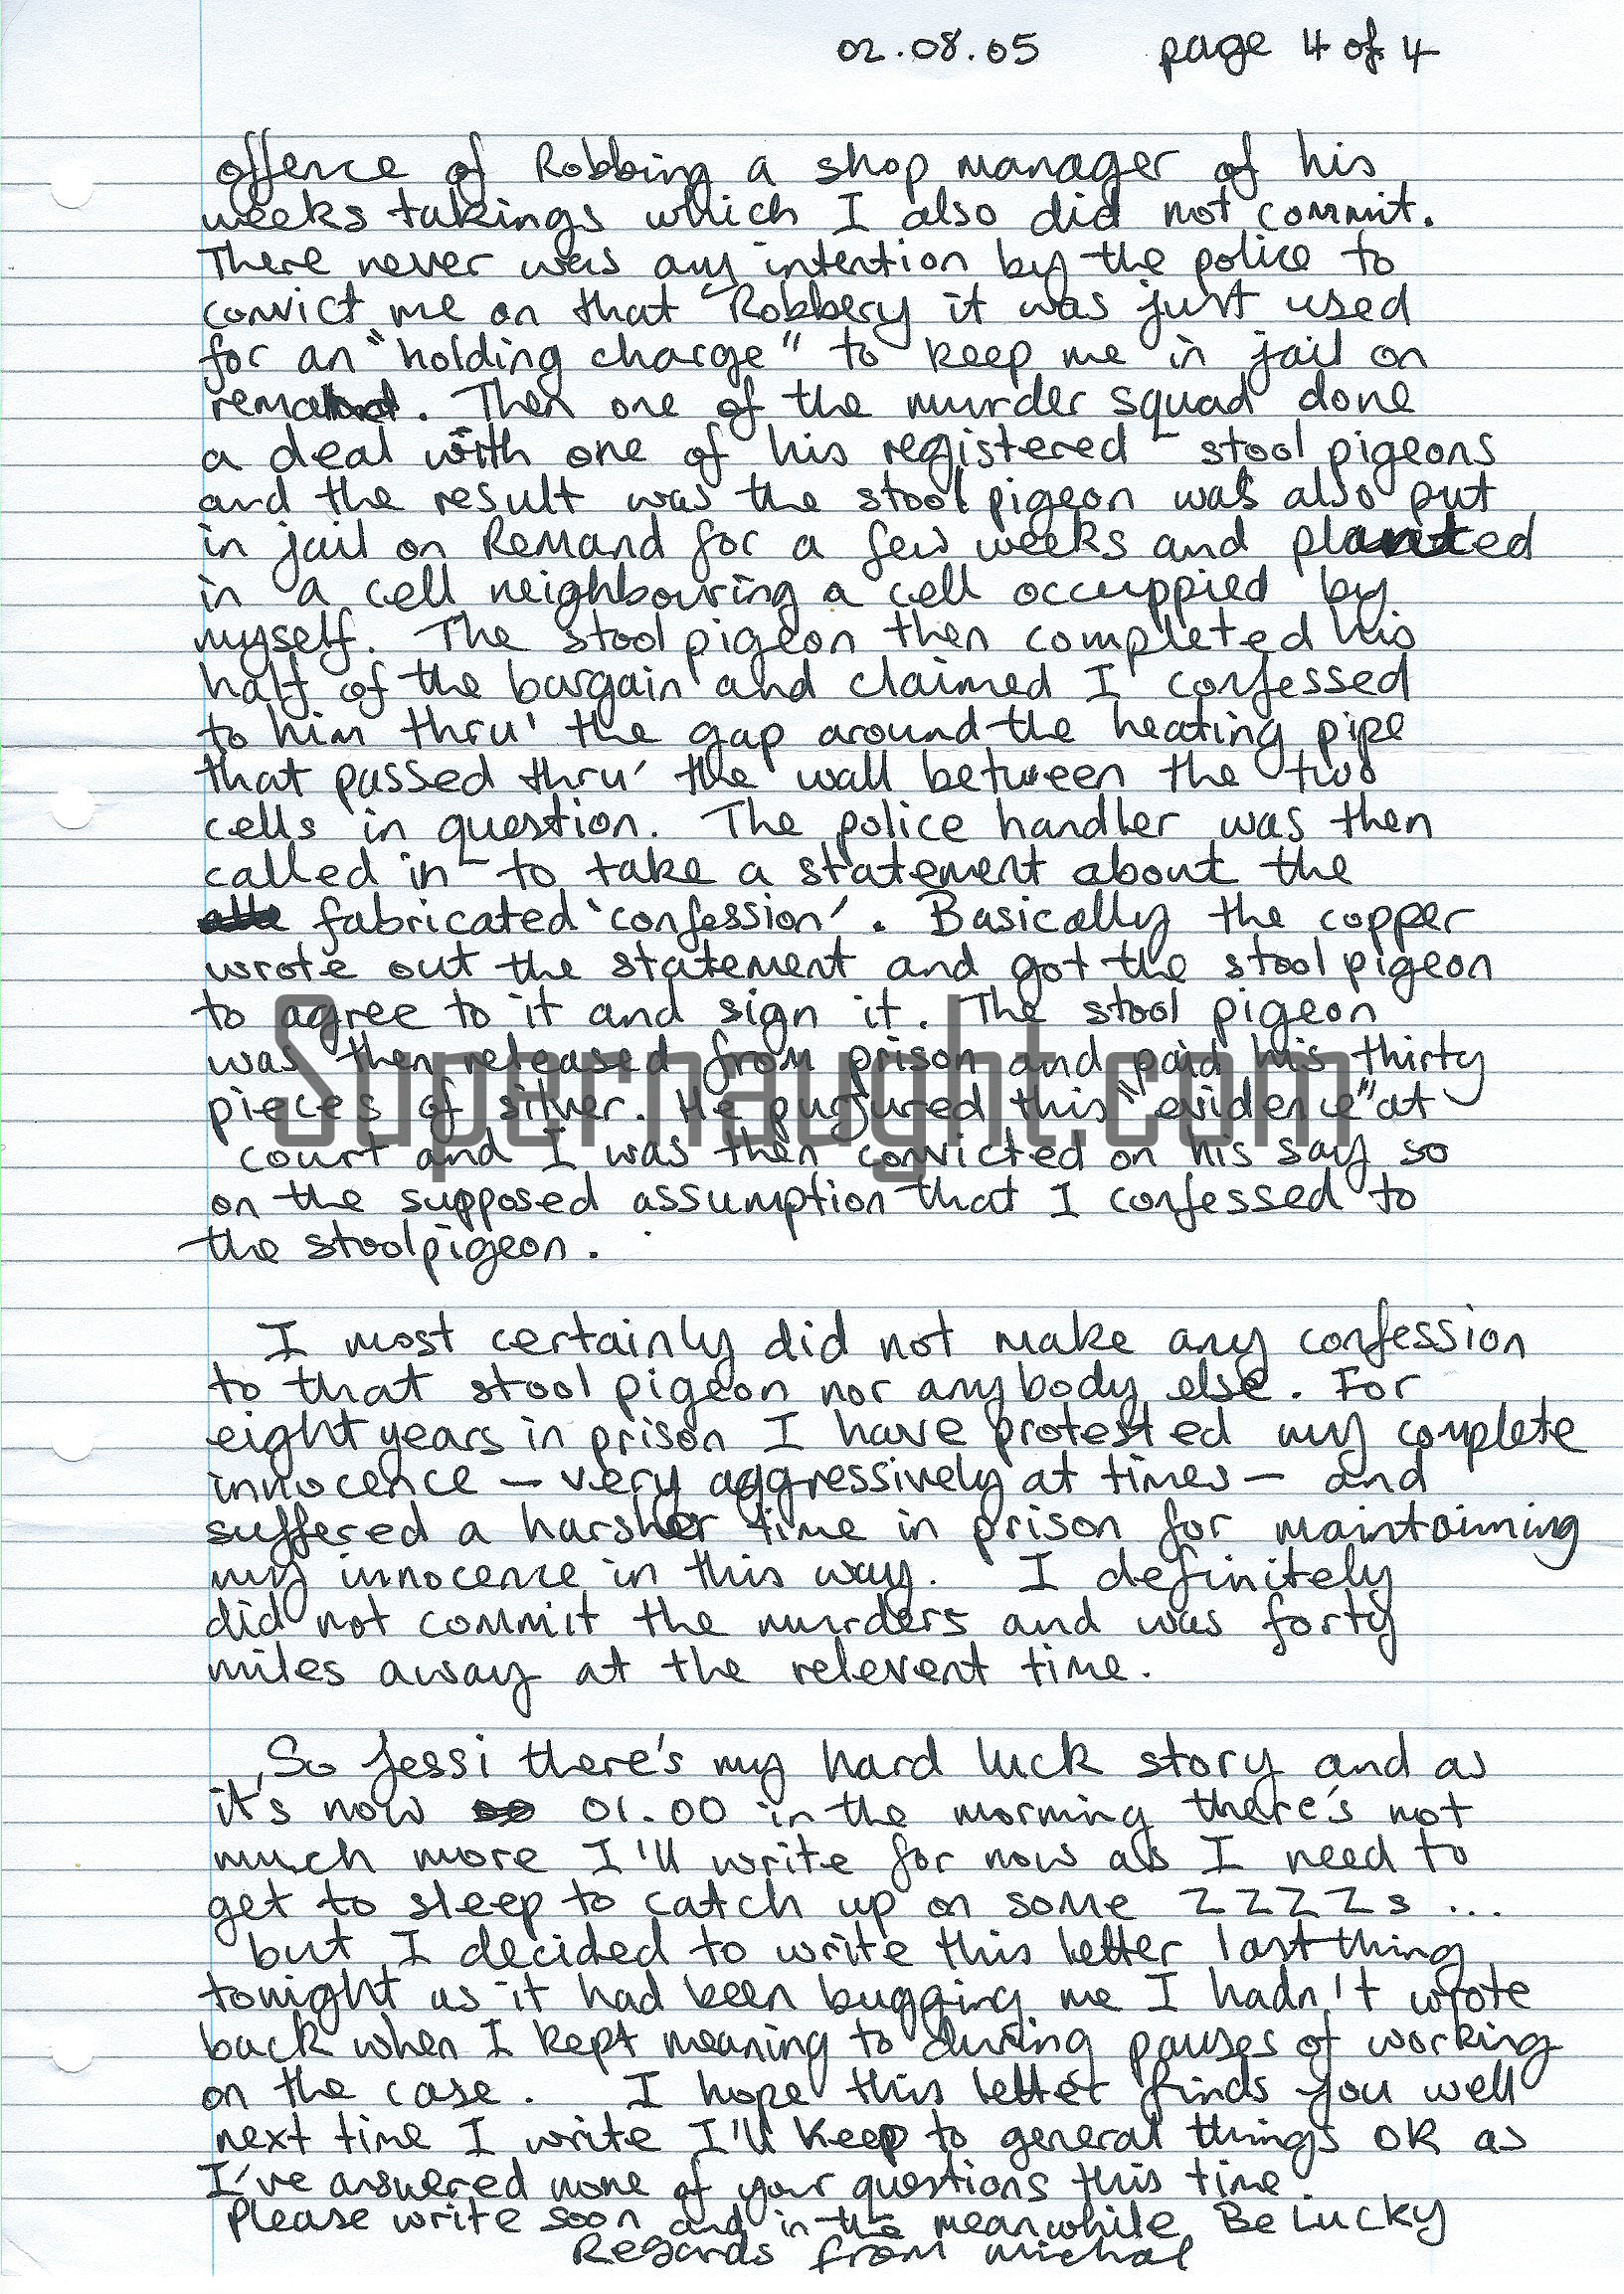 02.08.05 page 4 of 4
offence of Robbing a shop manager of his
weeks takings which I also did not commit.
There never was any intention by the police to
convict me on that Robbery it was just used
for an "holding charge" to keep me in jail on
remand. Then one of the murder squad done
a deal with one of his registered stool pigeons
and the result was the stool pigeon was also put
in jail on Remand for a few weeks and planted
in a cell neighbouring a cell occuppied by
myself. The stool pigeon then completed his
half of the bargain and claimed I confessed
to him thru' the gap around the heating pipe
that passed thru' the wall between the two
cells in question. The police handler was then
called in to take a statement about the
fabricated 'confession'. Basically the copper
wrote out the statement and got the stool pigeon
to agree to it and sign it. The stool pigeon
was then released from prison and paid his thirty
pieces of silver. He purjured this "evidence" at
court and I was then convicted on his say so
on the supposed assumption that I confessed to
the stoolpigeon.
I most certainly did not make any confession
to that stool pigeon nor anybody else. For
eight years in prison I have protested my complete
innocence – very aggressively at times – and
suffered a harsher time in prison for maintaining
my innocence in this way. I definitely
did not commit the murders and was forty
miles away at the relevent time.
So Jessi there's my hard luck story and as
it's now 01.00 in the morning there's not
much more I'll write for now as I need to
get to sleep to catch up on some ZZZZs ...
but I decided to write this letter last thing
tonight as it had been bugging me I hadn't wrote
back when I kept meaning to during pauses of working
on the case. I hope this letter finds you well
next time I write I'll keep to general things OK as
I've answered none of your questions this time.
Please write soon and in the meanwhile Be Lucky
Regards from Michal
Supernaught.com